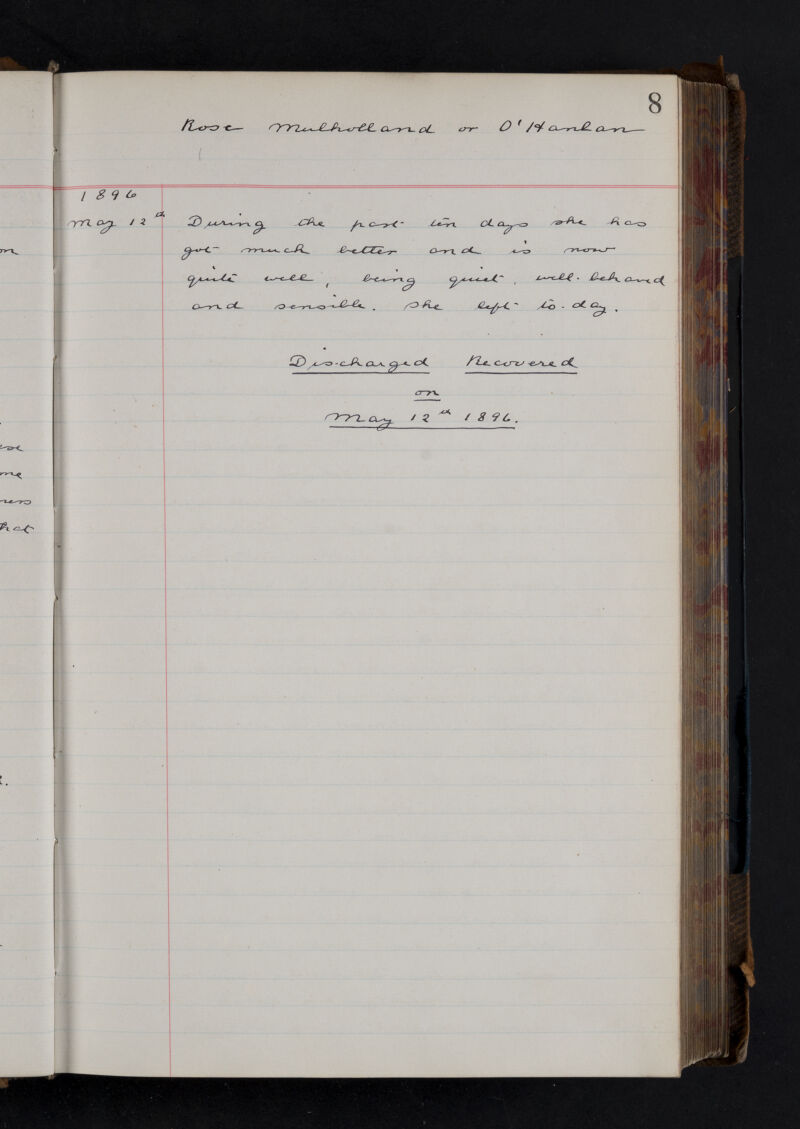 8
Rose Mulholland or O'Hanlan
1896
May 12th During the past ten days she has
got much better and is now
quite well, being quiet, well-behaved
and sensible. She left to-day.
Discharged Recovered
on
May 12th 1896.